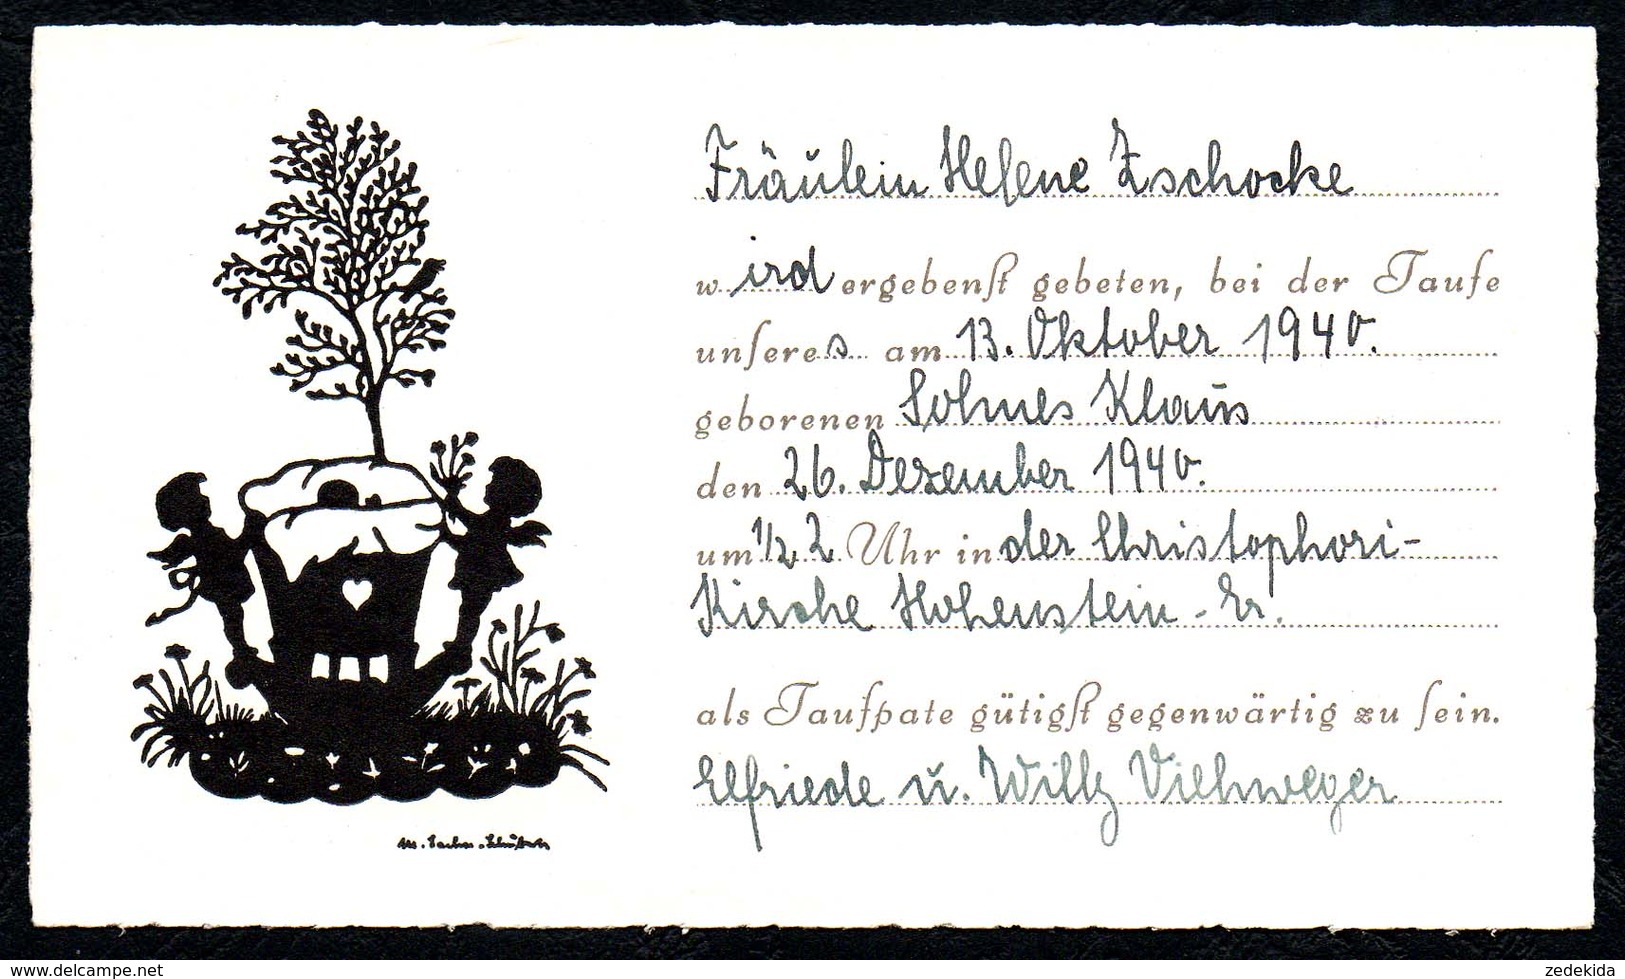 Fräulein Helene Zschocke
wird ergebenst gebeten, bei der Taufe
unseres am 13. Oktober 1940.
geborenen Sohnes Klaus
den 26. Dezember 1940.
um 1/2 2 Uhr in der Christophori-
Kirche Hohenstein-Er.
als Taufpate gütigst gegenwärtig zu sein.
Elfriede u. Willy Viehweger
www.delcampe.net
zedekida